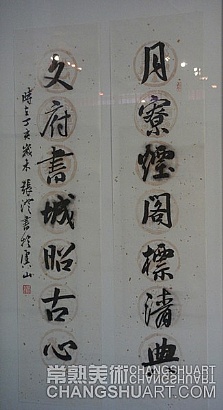 月寮煙閣標清典
文府書城昭古心
時在丁亥歲末張浮書於虞山
常熟美術
CHANGSHUART
CHANGSHUART.COM